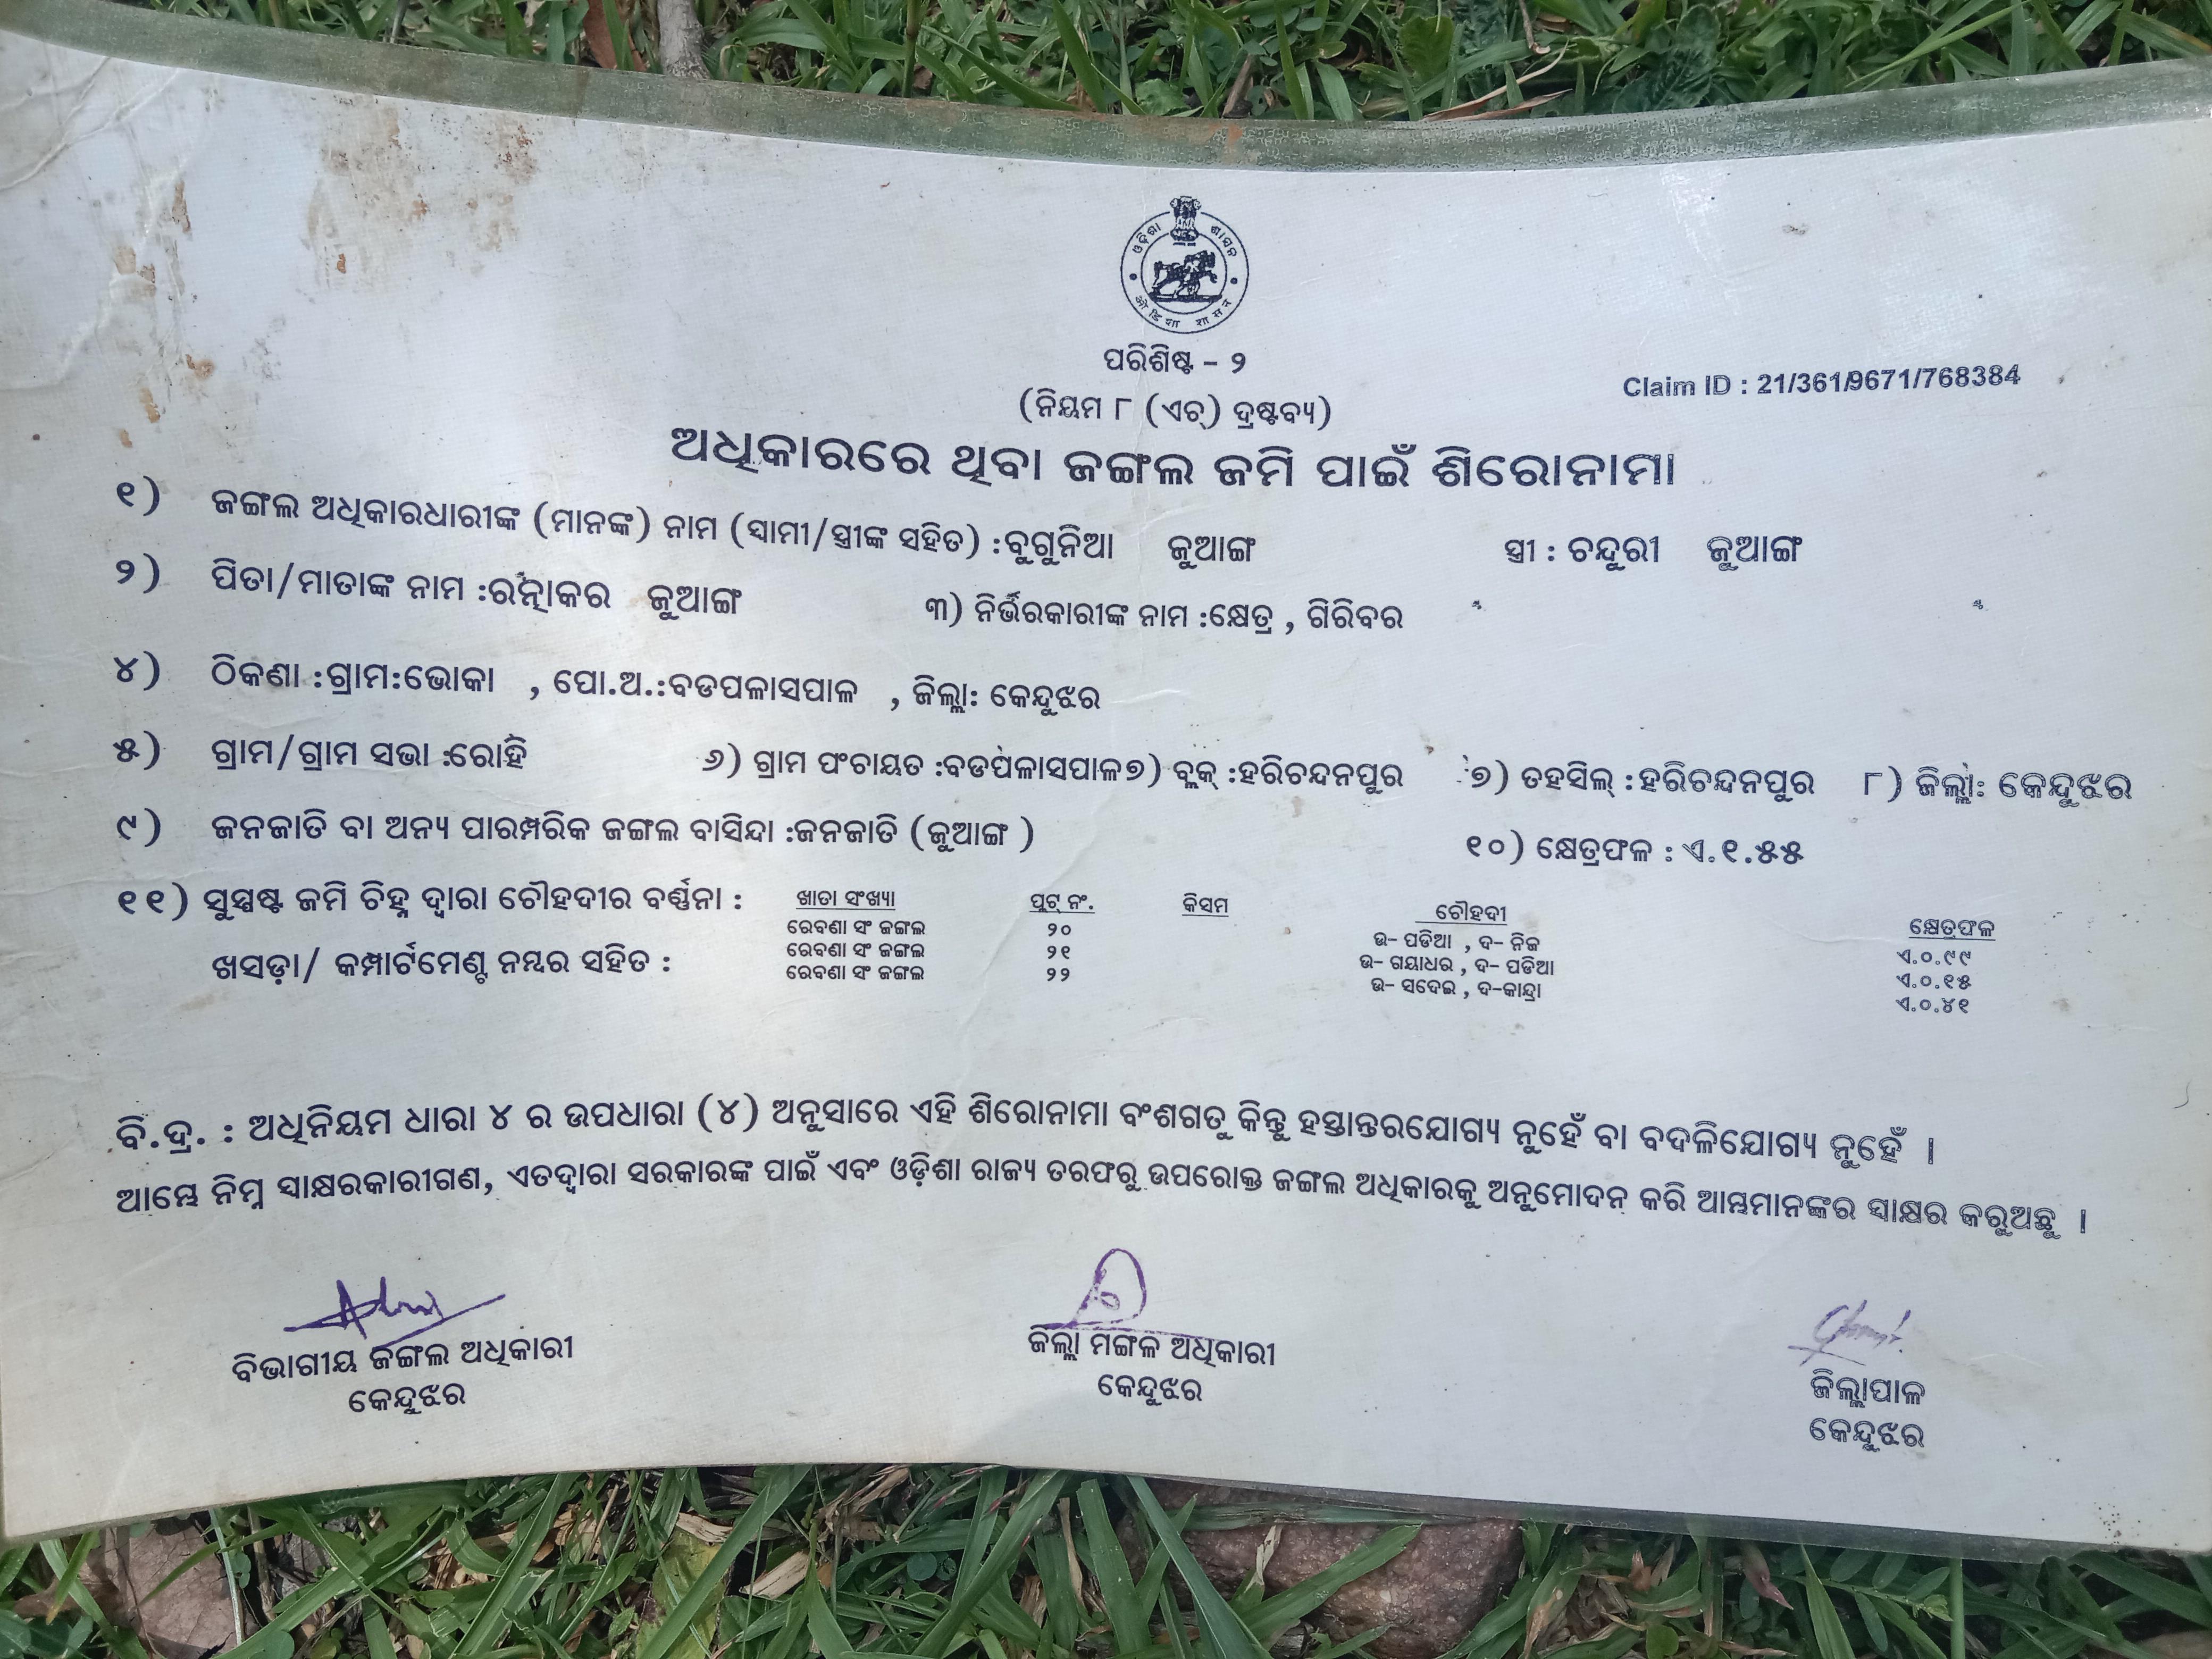 ଓଡ଼ିଶା ଶାସନ
ओडिशा शासन
ପରିଶିଷ୍ଟ - ୨
Claim ID : 21/361/9671/768384
(ନିୟମ ୮ (ଏଚ୍) ଦ୍ରଷ୍ଟବ୍ୟ)
ଅଧିକାରରେ ଥିବା ଜଙ୍ଗଲ ଜମି ପାଇଁ ଶିରୋନାମା
୧) ଜଙ୍ଗଲ ଅଧିକାରଧାରୀଙ୍କ (ମାନଙ୍କ) ନାମ (ସ୍ୱାମୀ/ସ୍ତ୍ରୀଙ୍କ ସହିତ) :ବୁଗୁନିଆ ଜୁଆଙ୍ଗ ସ୍ତ୍ରୀ : ଚନ୍ଦୁରୀ ଜୁଆଙ୍ଗ
୨) ପିତା/ମାତାଙ୍କ ନାମ :ରତ୍ନାକର ଜୁଆଙ୍ଗ ୩) ନିର୍ଭରକାରୀଙ୍କ ନାମ :କ୍ଷେତ୍ର , ଗିରିବର
୪) ଠିକଣା :ଗ୍ରାମ:ଭୋକା , ପୋ.ଅ.:ବଡପଳାସପାଳ , ଜିଲ୍ଲା: କେନ୍ଦୁଝର
୫) ଗ୍ରାମ/ଗ୍ରାମ ସଭା :ରୋହି ୬) ଗ୍ରାମ ପଂଚାୟତ :ବଡପଳାସପାଳ ୭) ବ୍ଲକ୍ :ହରିଚନ୍ଦନପୁର ୭) ତହସିଲ୍ :ହରିଚନ୍ଦନପୁର ୮) ଜିଲ୍ଲା: କେନ୍ଦୁଝର
୯) ଜନଜାତି ବା ଅନ୍ୟ ପାରମ୍ପରିକ ଜଙ୍ଗଲ ବାସିନ୍ଦା :ଜନଜାତି (ଜୁଆଙ୍ଗ ) ୧୦) କ୍ଷେତ୍ରଫଳ : ଏ.୧.୫୫
୧୧) ସୁସ୍ପଷ୍ଟ ଜମି ଚିହ୍ନ ଦ୍ୱାରା ଚୌହଦୀର ବର୍ଣ୍ଣନା : ଖାତା ସଂଖ୍ୟା ପ୍ଲଟ୍ ନଂ. କିସମ ଚୌହଦୀ କ୍ଷେତ୍ରଫଳ
ରେବଣା ସଂ ଜଙ୍ଗଲ ୨୦ ଉ- ପଡିଆ , ଦ- ନିଜ ଏ.୦.୯୯
ରେବଣା ସଂ ଜଙ୍ଗଲ ୨୧ ଉ- ଗୟାଧର , ଦ- ପଡିଆ ଏ.୦.୧୫
ଖସଡ଼ା/ କମ୍ପାର୍ଟମେଣ୍ଟ ନମ୍ବର ସହିତ : ରେବଣା ସଂ ଜଙ୍ଗଲ ୨୨ ଉ- ସଦେଇ , ଦ-କାନ୍ଦ୍ରା ଏ.୦.୪୧
ବି.ଦ୍ର. : ଅଧିନିୟମ ଧାରା ୪ ର ଉପଧାରା (୪) ଅନୁସାରେ ଏହି ଶିରୋନାମା ବଂଶଗତ କିନ୍ତୁ ହସ୍ତାନ୍ତରଯୋଗ୍ୟ ନୁହେଁ ବା ବଦଳିଯୋଗ୍ୟ ନୁହେଁ ।
ଆମ୍ଭେ ନିମ୍ନ ସ୍ୱାକ୍ଷରକାରୀଗଣ, ଏତଦ୍ୱାରା ସରକାରଙ୍କ ପାଇଁ ଏବଂ ଓଡ଼ିଶା ରାଜ୍ୟ ତରଫରୁ ଉପରୋକ୍ତ ଜଙ୍ଗଲ ଅଧିକାରକୁ ଅନୁମୋଦନ କରି ଆମ୍ଭମାନଙ୍କର ସ୍ୱାକ୍ଷର କରୁଅଛୁ ।
ବିଭାଗୀୟ ଜଙ୍ଗଲ ଅଧିକାରୀ ଜିଲ୍ଲା ମଙ୍ଗଳ ଅଧିକାରୀ ଜିଲ୍ଲାପାଳ
କେନ୍ଦୁଝର କେନ୍ଦୁଝର କେନ୍ଦୁଝର